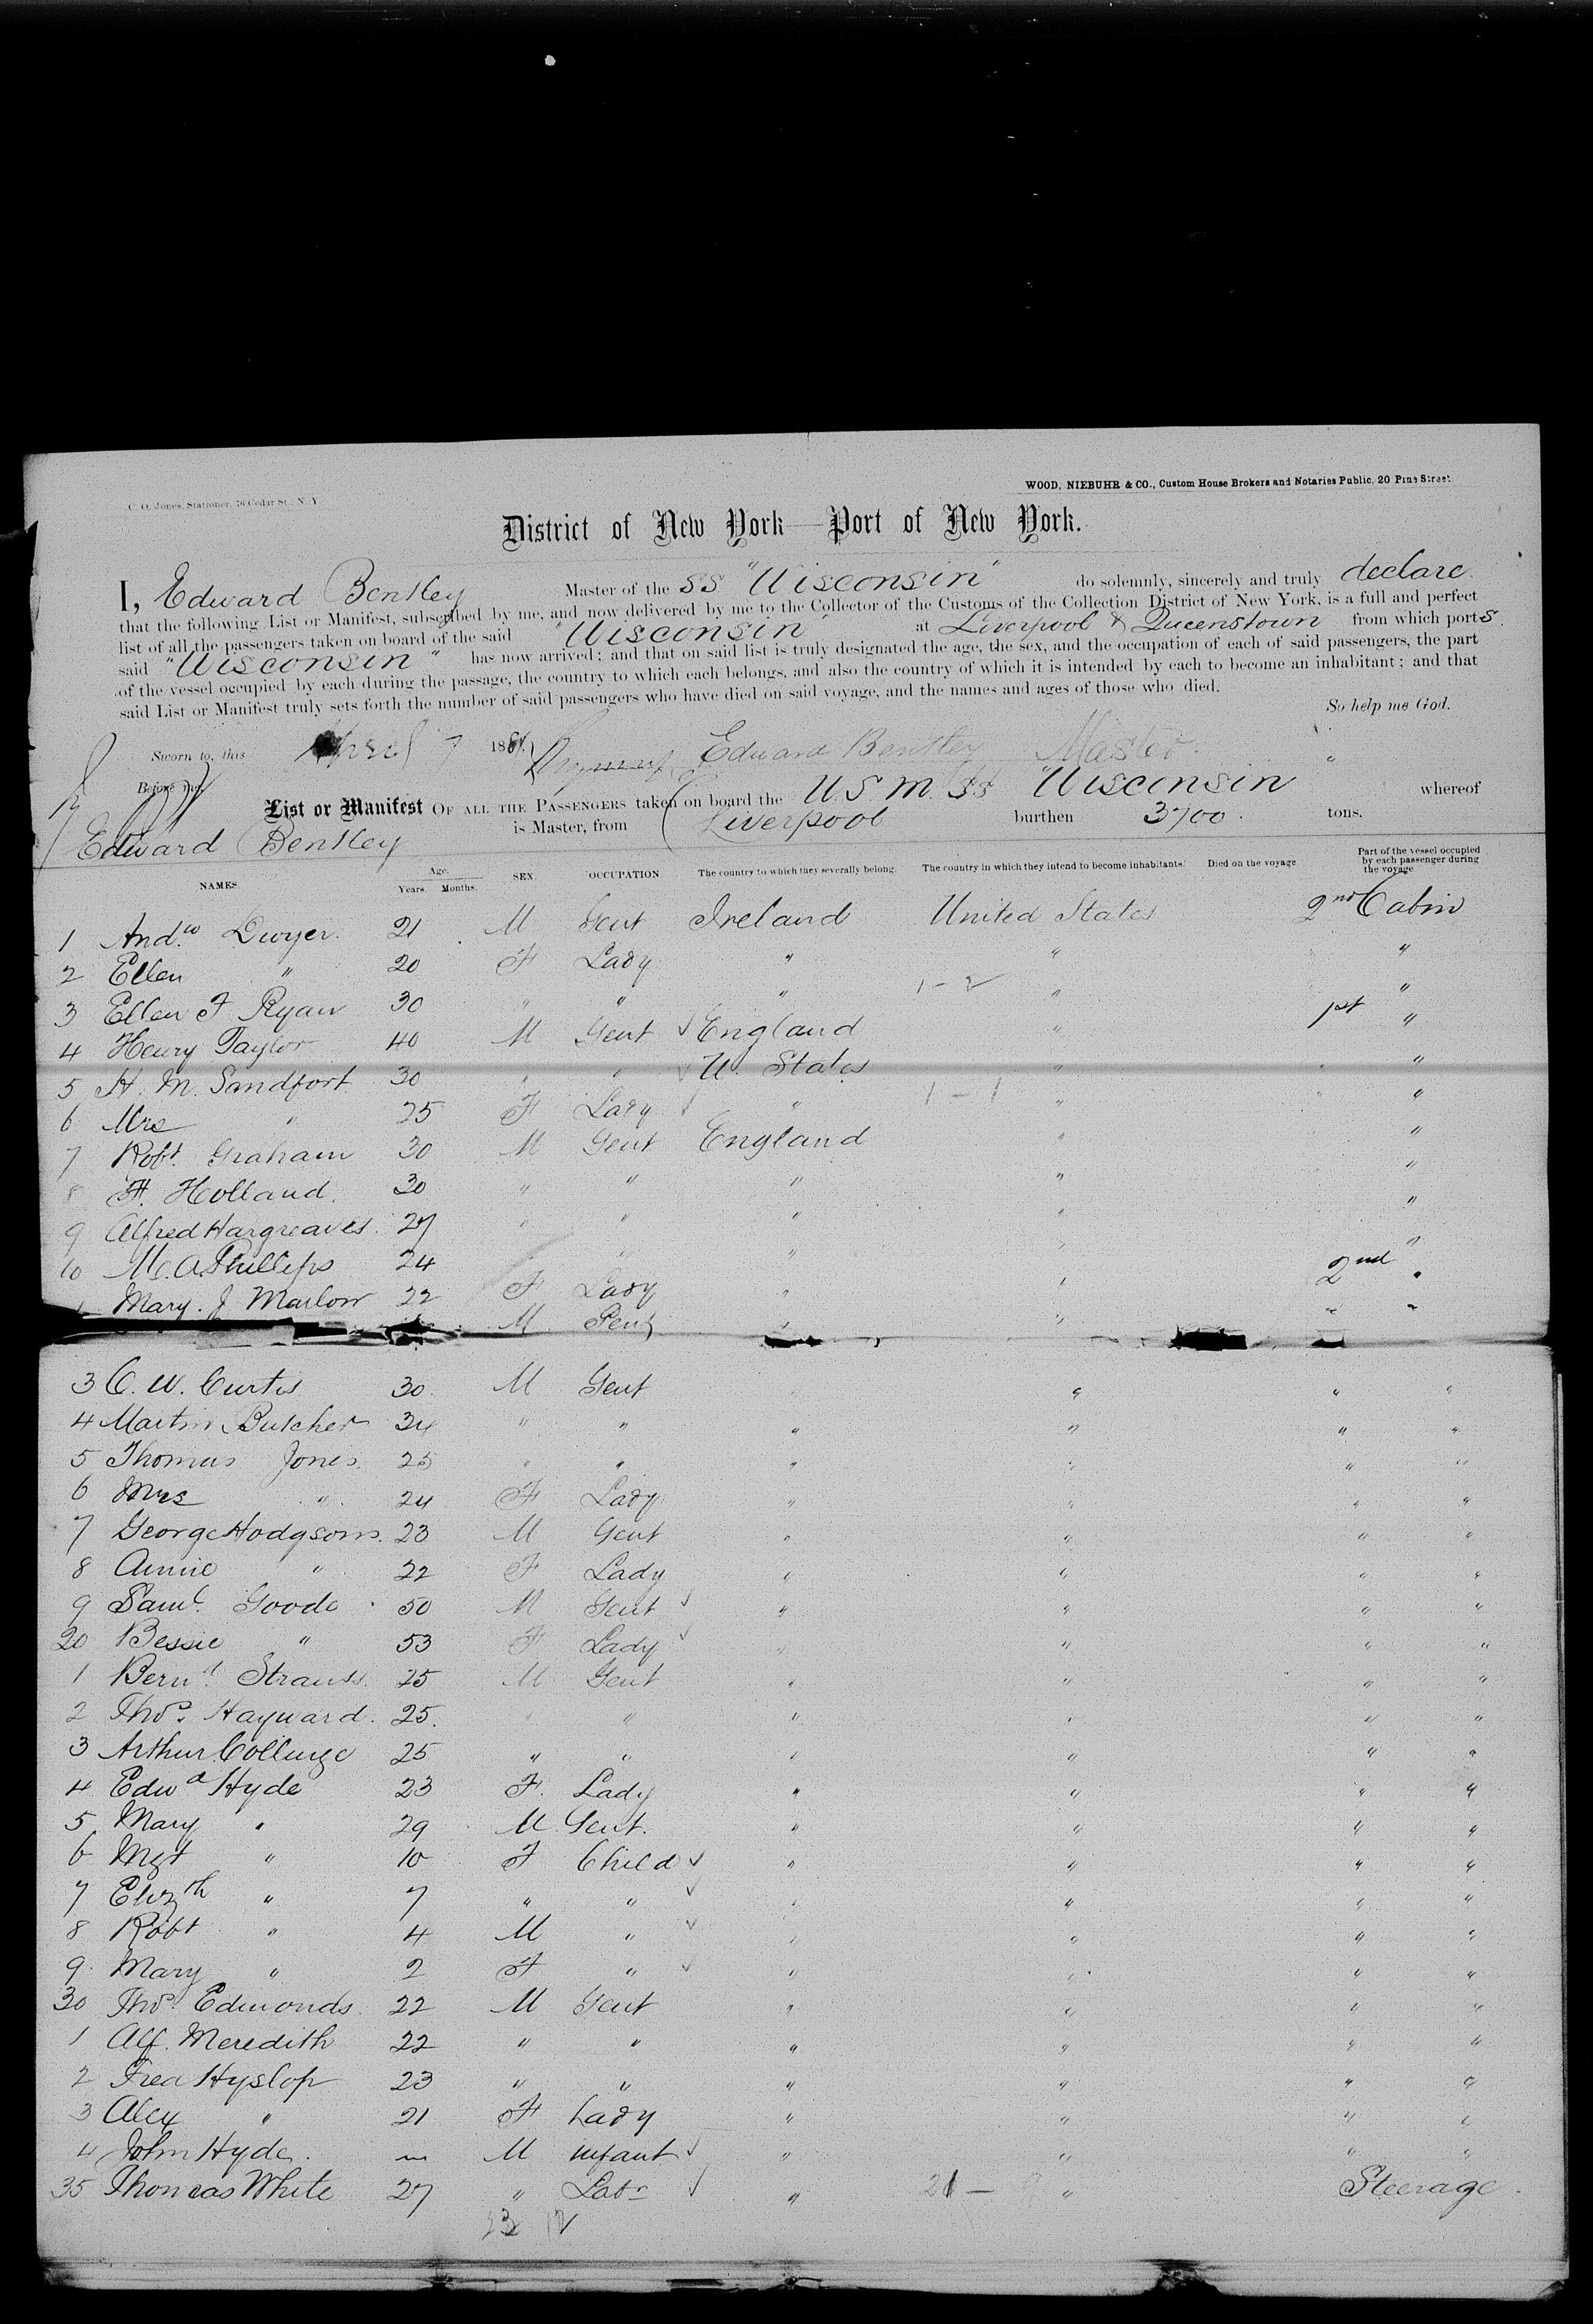 C. O. Jones, Stationer, 76 Cedar St., N. Y.
WOOD, NIEBUHR & CO., Custom House Brokers and Notaries Public, 20 Pine Street
District of New York—Port of New York.
I, Edward Bentley Master of the SS "Wisconsin" do solemnly, sincerely and truly declare
that the following List or Manifest, subscribed by me, and now delivered by me to the Collector of the Customs of the Collection District of New York, is a full and perfect
list of all the passengers taken on board of the said "Wisconsin" at Liverpool & Queenstown from which ports
said "Wisconsin" has now arrived; and that on said list is truly designated the age, the sex, and the occupation of each of said passengers, the part
of the vessel occupied by each during the passage, the country to which each belongs, and also the country of which it is intended by each to become an inhabitant; and that
said List or Manifest truly sets forth the number of said passengers who have died on said voyage, and the names and ages of those who died.
So help me God.
Sworn to, this April 7 188 Edward Bentley Master
Before me,
List or Manifest OF ALL THE PASSENGERS taken on board the U.S.M. SS "Wisconsin whereof
Edward Bentley is Master, from Liverpool burthen 3700 tons.
NAMES Age. Years. Months. SEX. OCCUPATION The country to which they severally belong. The country in which they intend to become inhabitants. Died on the voyage Part of the vessel occupied by each passenger during the voyage
1 Andw Dwyer 21 M Gent Ireland United States 2nd Cabin
2 Ellen " 20 F Lady " " "
3 Ellen F Ryan 30 " " " 1-2 " "
4 Henry Taylor 40 M Gent England " 1st "
5 H. M. Sandfort 30 " " U. States " "
6 Mrs " 25 F Lady " 1-1 " "
7 Robt. Graham 30 M Gent England " "
8 F. Holland 30 " " " " "
9 Alfred Hargreaves 27 " " " " "
10 M. A. Phillips 24 " " " "
Mary. J Marlow 22 F Lady " " 2nd "
M Gent " " " "
3 C. W. Curtis 30 M Gent " " " "
4 Martin Butcher 34 " " " " " "
5 Thomas Jones 25 " " " " " "
6 Mrs " 24 F Lady " " " "
7 George Hodgson 23 M Gent " " " "
8 Annie " 22 F Lady " " " "
9 Saml. Goode 50 M Gent " " " "
20 Bessie " 53 F Lady " " " "
1 Bernd. Strauss 25 M Gent " " " "
2 Thos. Hayward 25 " " " " " "
3 Arthur Collinge 25 " " " " " "
4 Edwd Hyde 23 F. Lady " " " "
5 Mary " 29 M Gent. " " " "
6 Mgt " 10 F Child " " " "
7 Elizth " 7 " " " " " "
8 Robt " 4 M " " " " "
9 Mary " 2 F " " " " "
30 Thos. Edmonds 22 M Gent " " " "
1 Alf. Meredith 22 " " " " " "
2 Fred Hyslop 23 " " " " " "
3 Alex " 21 F Lady " " " "
4 John Hyde M infant " " " "
35 Thomas White 27 " Labr " 21 — " Steerage